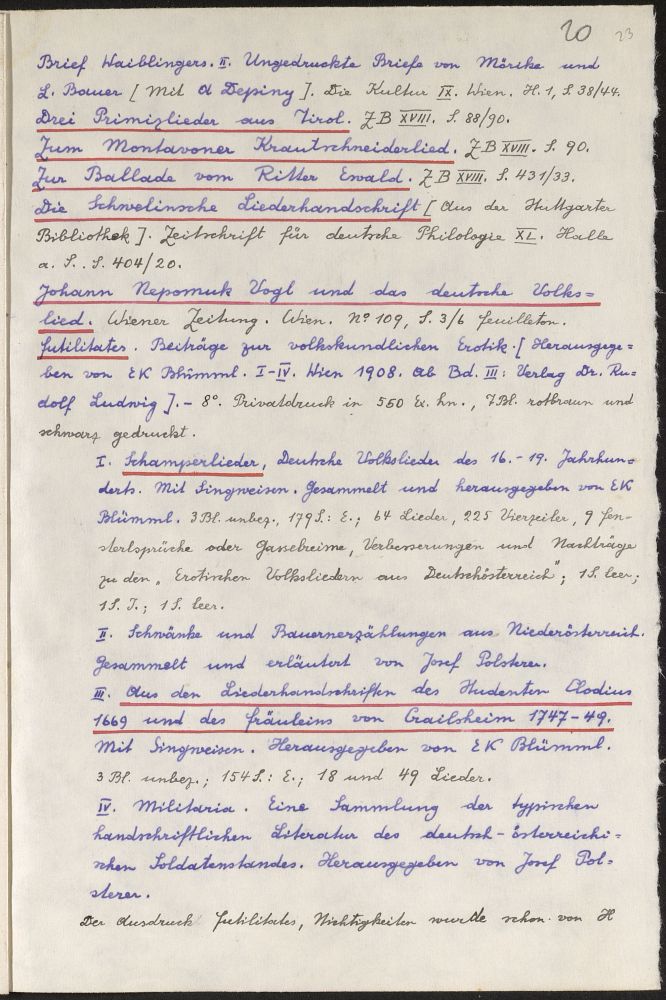 20 23
Brief Waiblingers. II. Ungedruckte Briefe von Mörike und
L. Bauer [ mit A Depiny ]. Die Kultur IX. Wien. H. 1, S. 38/44.
Drei Primizlieder aus Tirol. ZB XVIII. S. 88/90.
Zum Montavoner Krautschneiderlied. ZB XVIII. S. 90.
Zur Ballade vom Ritter Ewald. ZB XVIII. S. 431/33.
Die Schwelinsche Liederhandschrift [ Aus der Stuttgarter
Bibliothek ]. Zeitschrift für deutsche Philologie XL. Halle
a. S.. S. 404/20.
Johann Nepomuk Vogl und das deutsche Volks=
lied. Wiener Zeitung. Wien. No 109, S. 3/6 feuilleton.
Futilitates. Beiträge zur volkskundlichen Erotik. [ Herausgege=
ben von EK Blümml. I-IV. Wien 1908. Ab Bd. III: Verlag Dr. Ru=
dolf Ludwig ]. - 8°. Privatdruck in 550 Ex. hn., 7 Bl. rotbraun und
schwarz gedruckt.
I. Schamperlieder, Deutsche Volkslieder des 16. - 19. Jahrhun=
derts. Mit Singweisen. Gesammelt und herausgegeben von EK
Blümml. 3 Bl. unbez., 179 S.: E.; 64 Lieder, 225 Vierzeiler, 9 Fen-
stersprüche oder Gasselreime, Verbesserungen und Nachträge
zu den „ Erotischen Volksliedern aus Deutschösterreich"; 1 S. leer;
1 S. I.; 1 S. leer.
II. Schwänke und Bauernerzählungen aus Niederösterreich.
Gesammelt und erläutert von Josef Polsterer.
III. Aus den Liederhandschriften des Studenten Clodius
1669 und des Fräuleins von Crailsheim 1747-49.
Mit Singweisen. Herausgegeben von EK Blümml.
3 Bl. unbez.; 154 S.: E.; 18 und 49 Lieder.
IV. Militaria. Eine Sammlung der typischen
handschriftlichen Literatur des deutsch-österreichi=
schen Soldatenstandes. Herausgegeben von Josef Pol=
sterer.
Der Ausdruck Futilitates, Nichtigkeiten wurde schon von H